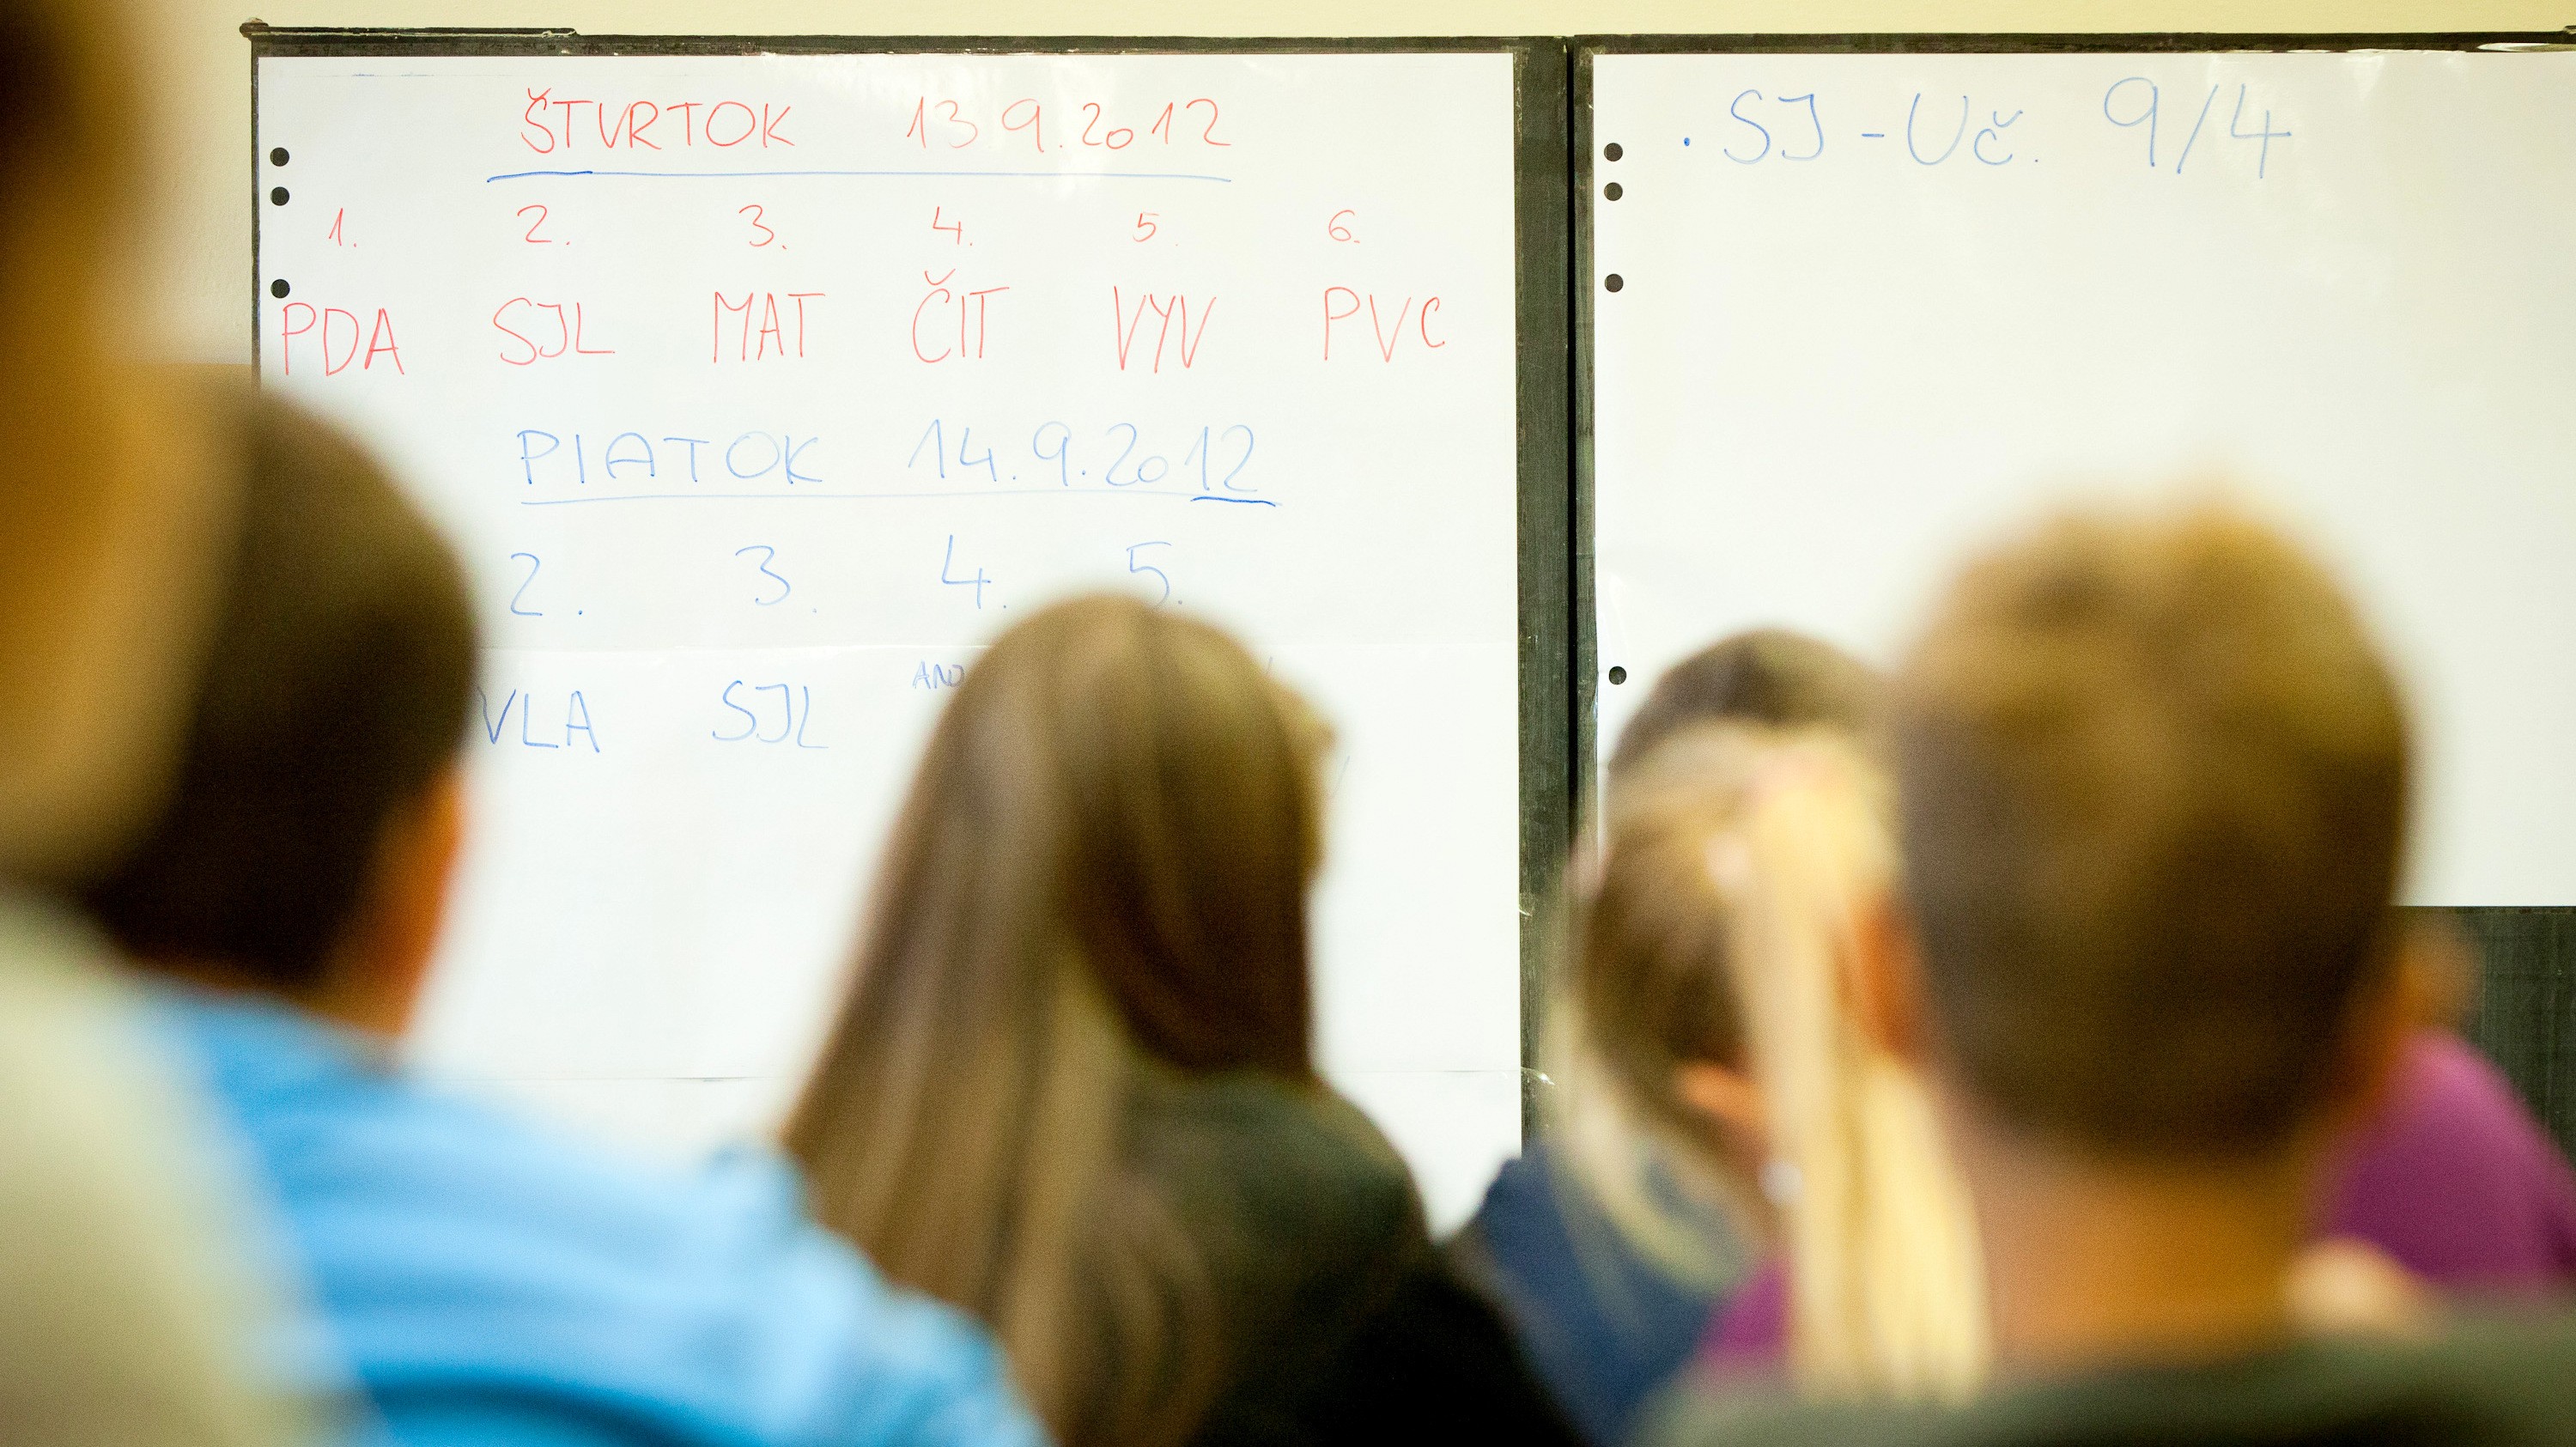 ŠTVRTOK 13 9.2012
1. 2. 3. 4. 5. 6.
PDA SJL MAT ČIT VYV PVC
PIATOK 14.9.2012
2. 3. 4. 5.
VLA SJL
SJ - Uč. 9/4